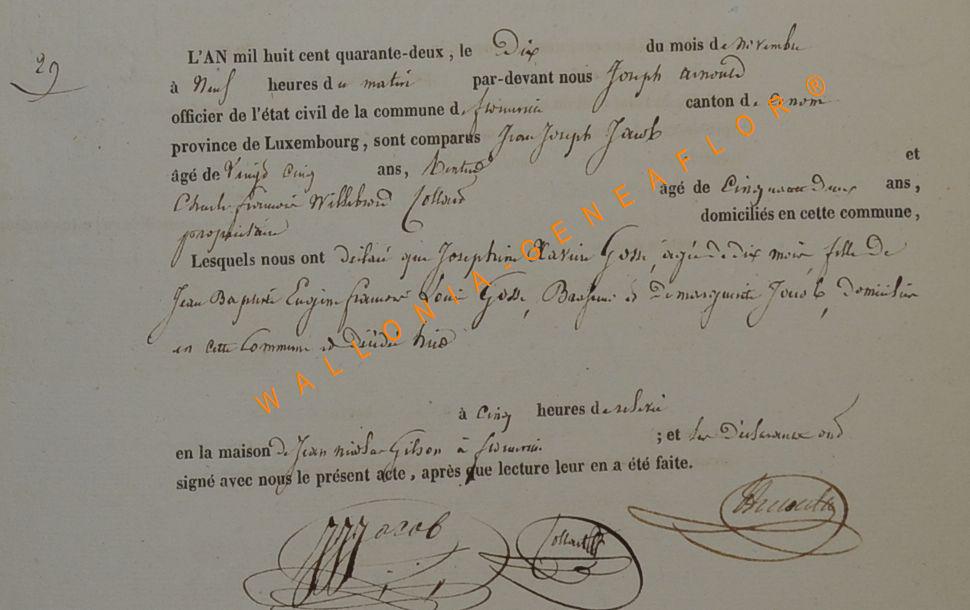 29
L'AN mil huit cent quarante-deux, le Dix du mois de Novembre
à Neuf heures du matin par-devant nous Joseph Arnould
officier de l'état civil de la commune de canton de
province de Luxembourg, sont comparus Jean Joseph Jacob
âgé de Vingt Cinq ans, et
Charles françois Willebrord Collard âgé de Cinquante deux ans,
propriétaire domiciliés en cette commune,
Lesquels nous ont déclaré que Josephine Xavier Gosse, agée de dix mois, fille de
Jean Baptiste Eugène françois Louis Gosse, Brasseur et De marguerite Jacob, domiciliés
en cette Commune est décédée hier
à Cinq heures de relevée
en la maison de Jean nicolas Gilson à ; et les Déclarants ont
signé avec nous le présent acte, après que lecture leur en a été faite.
JJJacob Collard
WALLONIA-GENEAFLOR®